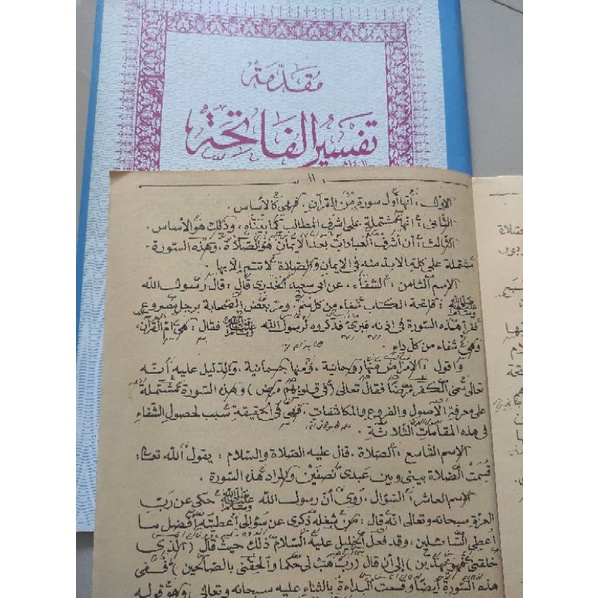 مقدمة
تفسير الفاتحة
١١
الأول: أنها أول سورة من القرآن، فهي كالأساس.
الثاني: أنها مشتملة على أشرف المطالب كما بيناه، وذلك هو الأساس.
الثالث: أن أشرف العبادات بعد الإيمان هو الصلاة، وهذه السورة
مشتملة على كل ما لا بد منه في الإيمان والصلاة لا تتم إلا بها.
الإسم الثامن: الشفاء، عن أبي سعيد الخدري قال: قال رسول الله
ﷺ: فاتحة الكتاب شفاء من كل سم، ومر بعض الصحابة برجل مصروع
فقرأ هذه السورة في أذنه فبرئ فذكروه لرسول الله ﷺ فقال: هي أم القرآن،
وهي شفاء من كل داء.
وأقول: الأمراض منها روحانية، ومنها جسمانية، والدليل عليه أنه
تعالى سمى الكفر مرضا فقال تعالى (في قلوبهم مرض) وهذه السورة مشتملة
على معرفة الأصول والفروع والمكاشفات، فهي في الحقيقة سبب لحصول الشفاء
في هذه المقامات الثلاثة.
الإسم التاسع: الصلاة، قال عليه الصلاة والسلام: يقول الله تعالى:
قسمت الصلاة بيني وبين عبدي نصفين والمراد هذه السورة.
الإسم العاشر: السؤال، روي أن رسول الله ﷺ حكى عن رب
العزة سبحانه وتعالى أنه قال: من شغله ذكري عن سؤالي أعطيته أفضل ما
أعطي السائلين، وقد فعل الخليل عليه السلام ذلك حيث قال (الذي
خلقني فهو يهدين) إلى أن قال (رب هب لي حكما وألحقني بالصالحين) ففي
هذه السورة أيضا وقعت البداءة بالثناء عليه سبحانه وتعالى وهو قوله